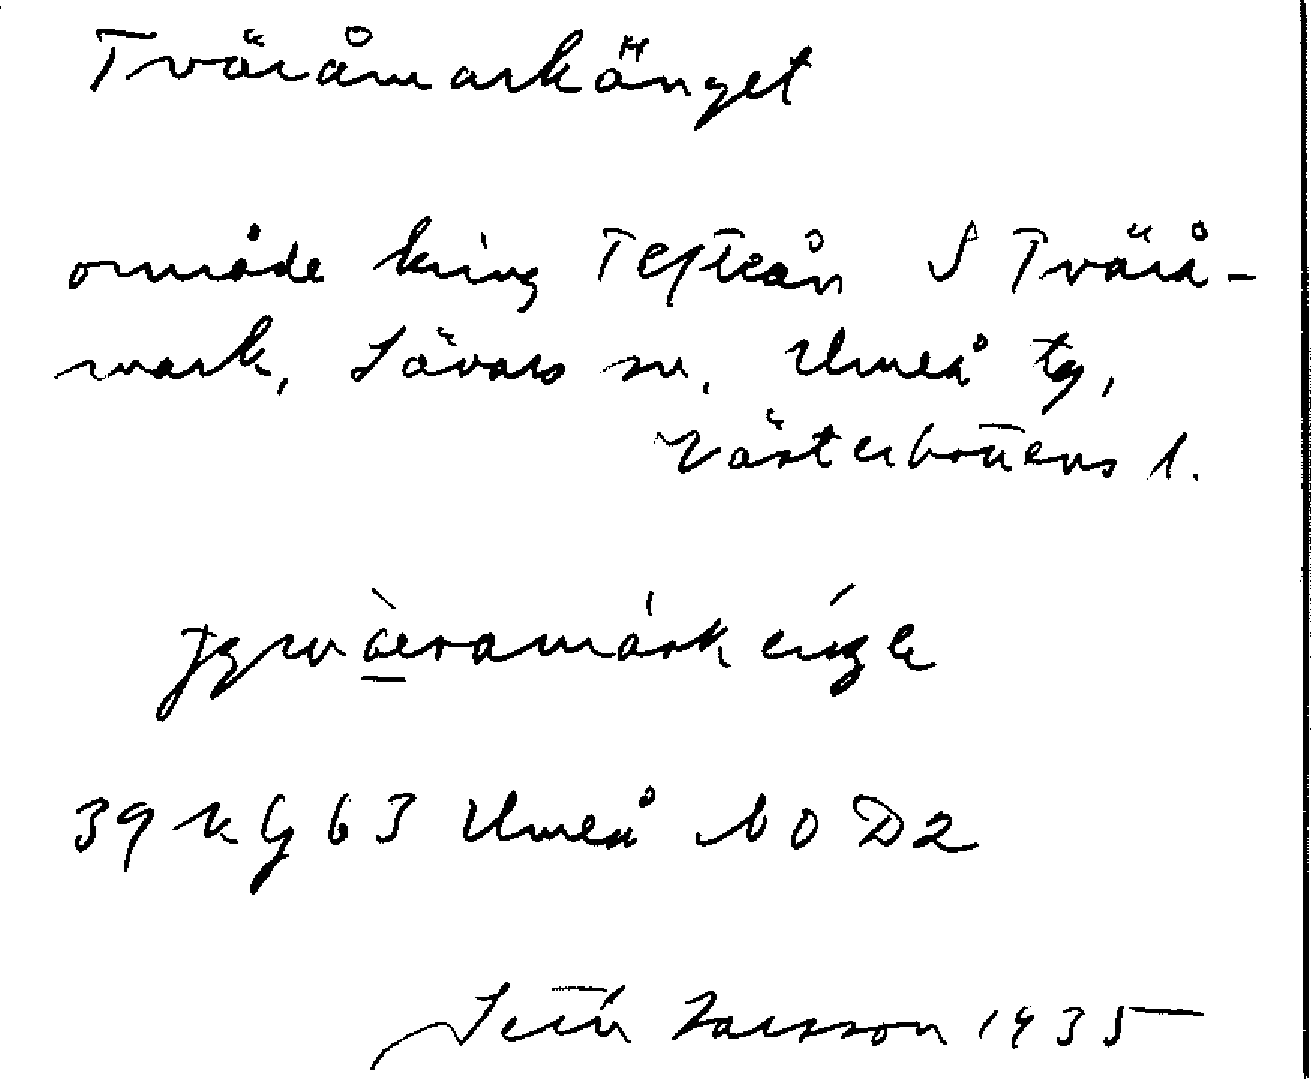 Tväråmarkänget
område kring Tefteån S Tvärå-
mark, Sävars sn, Umeå tg,
Västerbottens l.
39 k G 63 Umeå NO D2
Larsson 1935